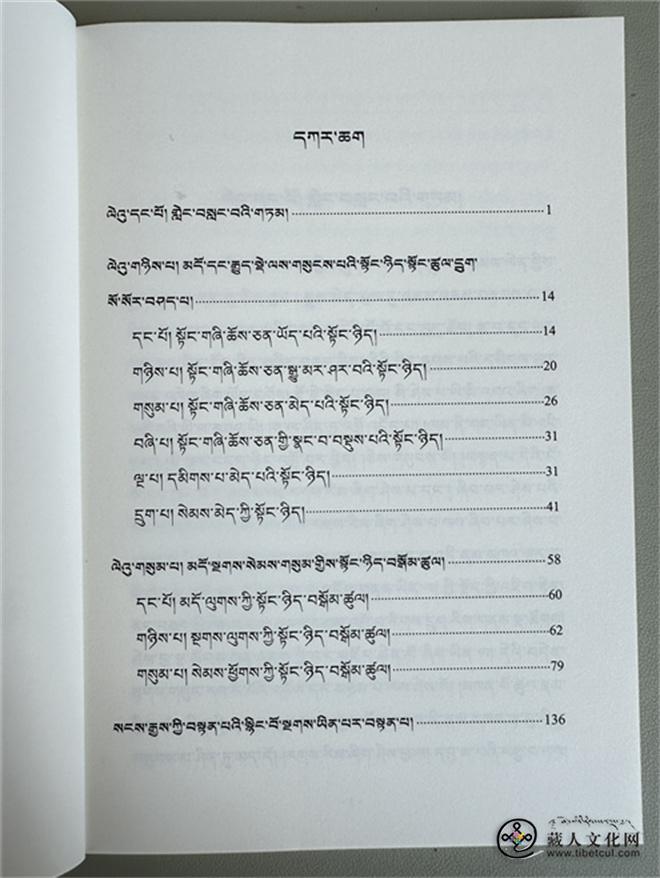 དཀར་ཆག
ལེའུ་དང་པོ། གླེང་བསླང་བའི་གཏམ། ······ 1
ལེའུ་གཉིས་པ། མདོ་དང་རྒྱུད་སྡེ་ལས་གསུངས་པའི་སྟོང་ཉིད་སྟོང་ཚུལ་དྲུག་
སོ་སོར་བཤད་པ། ······ 14
དང་པོ། སྟོང་གཞི་ཆོས་ཅན་ཡོད་པའི་སྟོང་ཉིད། ······ 14
གཉིས་པ། སྟོང་གཞི་ཆོས་ཅན་སྒྱུ་མར་ཤར་བའི་སྟོང་ཉིད། ······ 20
གསུམ་པ། སྟོང་གཞི་ཆོས་ཅན་མེད་པའི་སྟོང་ཉིད། ······ 26
བཞི་པ། སྟོང་གཞི་ཆོས་ཅན་གྱི་སྣང་བ་བསྡུས་པའི་སྟོང་ཉིད། ······ 31
ལྔ་པ། དམིགས་པ་མེད་པའི་སྟོང་ཉིད། ······ 31
དྲུག་པ། སེམས་མེད་ཀྱི་སྟོང་ཉིད། ······ 41
ལེའུ་གསུམ་པ། མདོ་སྔགས་སེམས་གསུམ་གྱིས་སྟོང་ཉིད་བསྒོམ་ཚུལ། ······ 58
དང་པོ། མདོ་ལུགས་ཀྱི་སྟོང་ཉིད་བསྒོམ་ཚུལ། ······ 60
གཉིས་པ། སྔགས་ལུགས་ཀྱི་སྟོང་ཉིད་བསྒོམ་ཚུལ། ······ 62
གསུམ་པ། སེམས་ཕྱོགས་ཀྱི་སྟོང་ཉིད་བསྒོམ་ཚུལ། ······ 79
སངས་རྒྱས་ཀྱི་བསྟན་པའི་སྙིང་པོ་སྔགས་ཡིན་པར་བསྟན་པ། ······ 136
藏人文化网
www.tibetcul.com